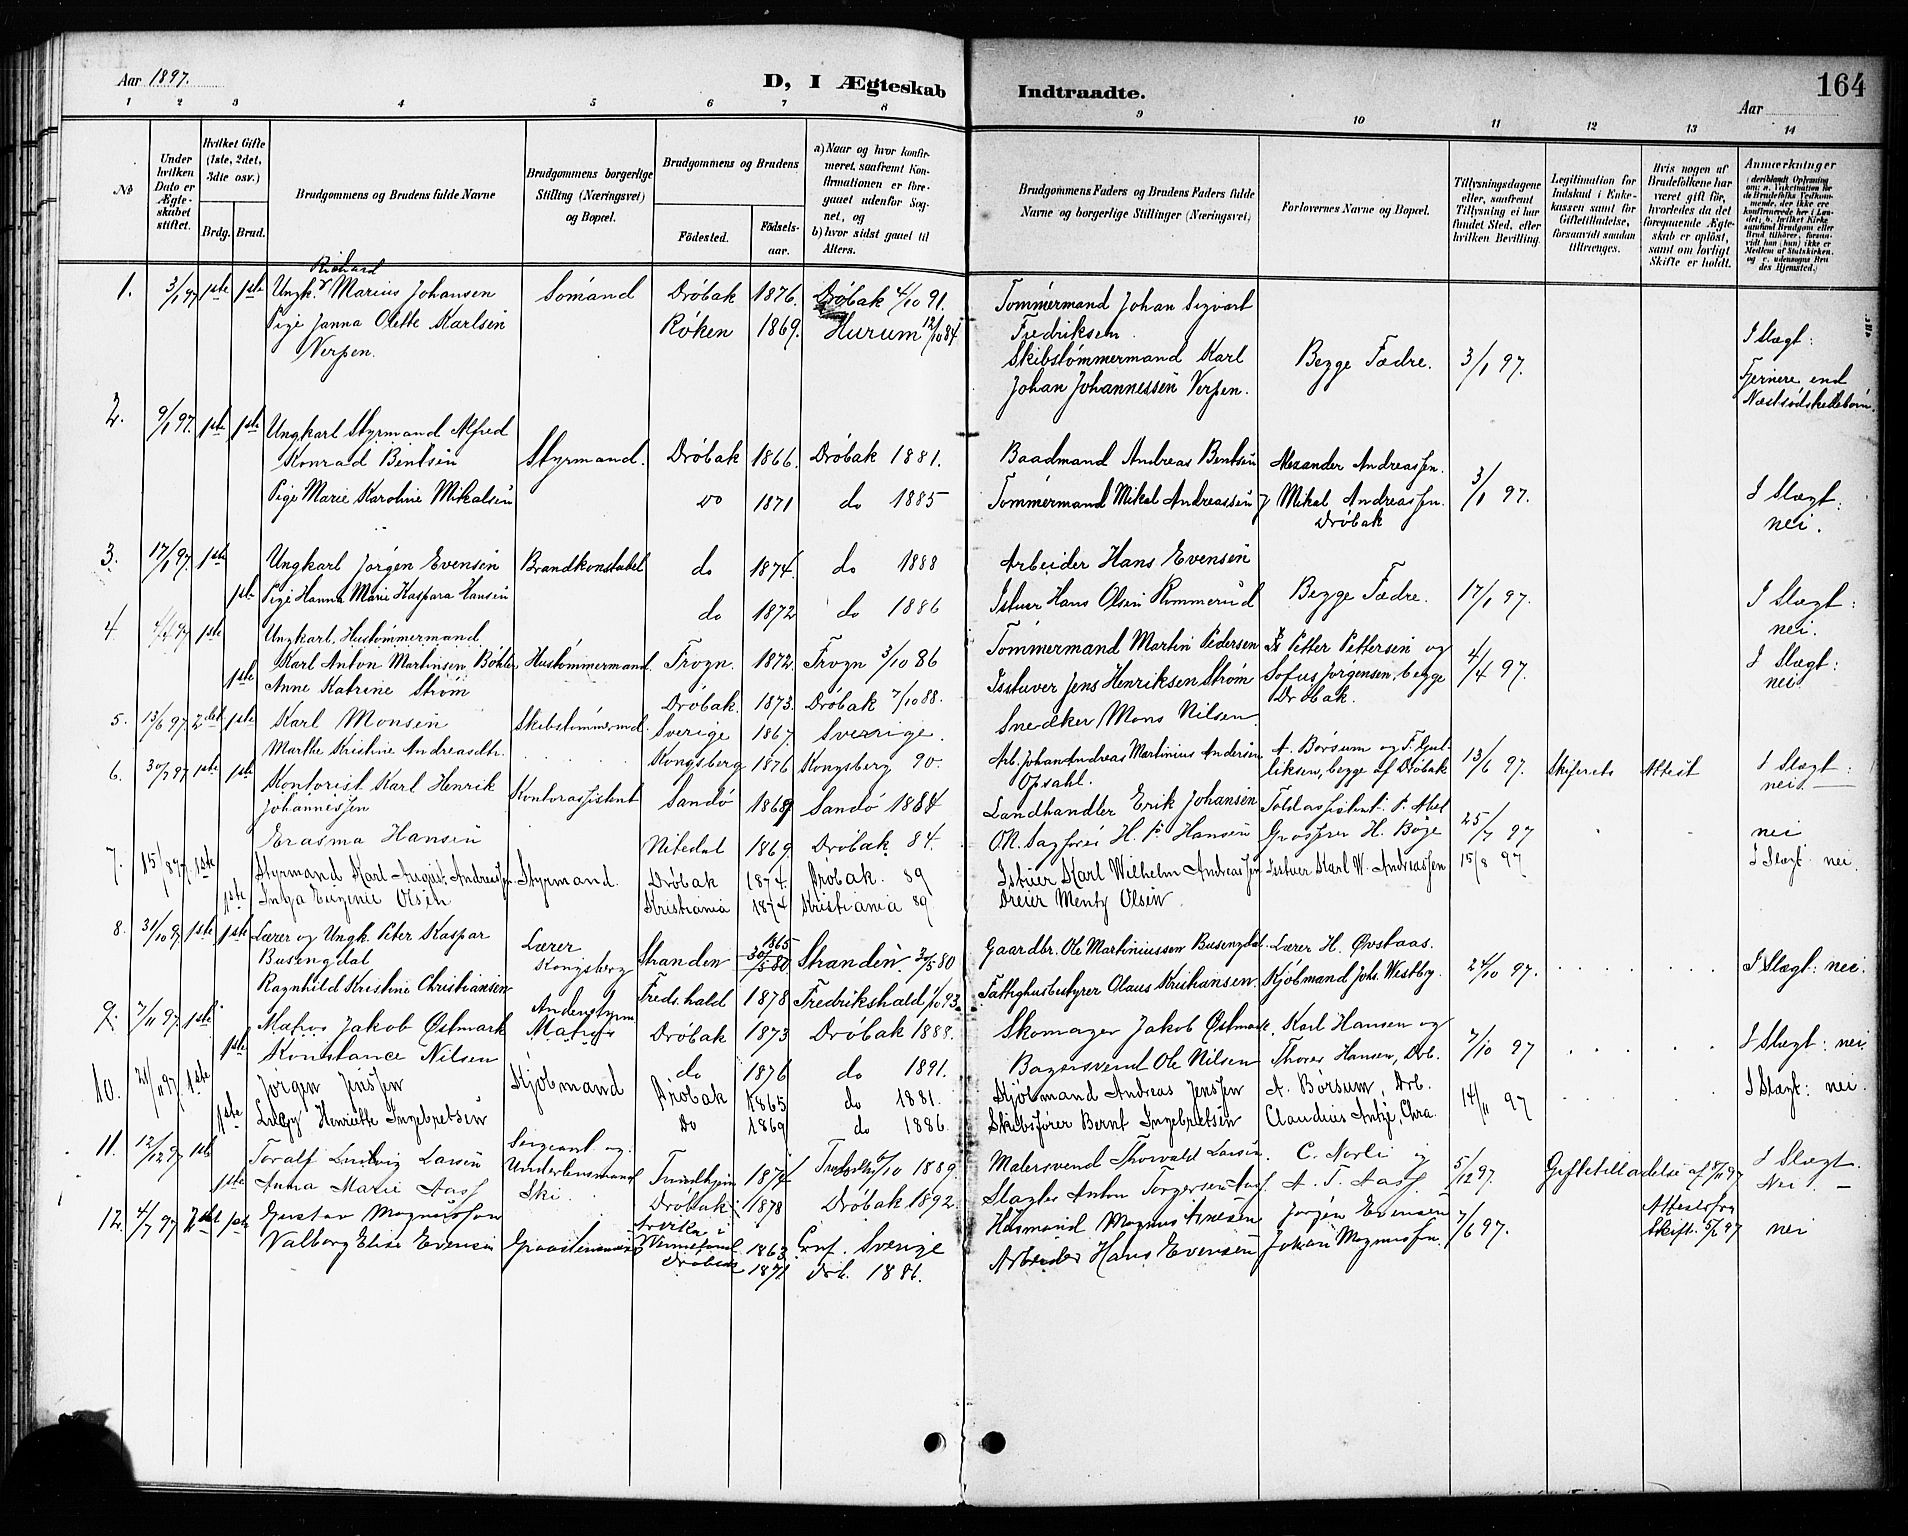 Aar 1897.
D, I Ægteskab Indtraadte.
164
Aar
1 2 3 4 5 6 7 8 9 10 11 12 13 14
No
Under hvilken Dato er Ægteskabet stiftet.
Hvilket Gifte (1ste, 2det, 3die osv.)
Brdg. Brud.
Brudgommens og Brudens fulde Navne
Brudgommens borgerlige Stilling (Næringsvei) og Bopæl.
Brudgommens og Brudens
Fødested. Fødselsaar.
a) Naar og hvor konfirmeret, saafremt Konfirmationen er foregaaet udenfor Sognet, og
b) hvor sidst gaaet til Alters.
Brudgommens Faders og Brudens Faders fulde Navne og borgerlige Stillinger (Næringsvei)
Forlovernes Navne og Bopæl.
Tillysningsdagene eller, saafremt Tillysning ei har fundet Sted, efter hvilken Bevilling.
Legitimation for Indskud i Enkekassen samt for Giftetilladelse, forsaavidt saadan tiltrænges.
Hvis nogen af Brudefolkene har været gift før, hvorledes da det foregaaende Ægteskab er opløst, samt om lovligt Skifte er holdt.
Anmærkninger
1. 3/1 97 1ste 1ste Ungk. Richard Marius Johansen Sømand Drøbak 1876. Drøbak 4/10 91. Tømmermand Johan Sigvart Fredriksen
Pige Janna Olette Karlsen Verpen. Røken 1869. Hurum 12/10 84 Skibstømmermand Karl Johan Johannessen Verpen. Begge Fædre. 3/1 97. I Slægt: Fjernere end Næstsødskendebørn.
2. 9/1 97. 1ste 1ste Ungkarl Styrmand Alfred Konrad Bentsen Styrmand. Drøbak 1866. Drøbak 1881. Baadmand Andreas Bentsen Alexander Andreassen.
Pige Marie Karoline Mikalsen do 1871 do 1885 Tømmermand Mikal Andreassen Mikal Andreassen. Drøbak 3/1 97. I Slægt: nei.
3. 17/1 97. 1ste Ungkarl Jørgen Evensen Brandkonstabel do 1874. do 1888 Arbeider Hans Evensen
1ste Pige Hanna Marie Kaspara Hansen do 1872 do 1886 Istuer Hans Olsen Rommerud Begge Fædre. 17/1 97. I Slægt: nei.
4. 4/4 97 1ste Ungkarl, Hustømmermand Karl Anton Martinsen Bøhler, Hustømmermand. Frogn. 1872. Frogn 3/10 86 Tømmermand Martin Pedersen Petter Pettersen og
1ste Anne Katrine Strøm Drøbak. 1873. Drøbak 7/10 88. Isstuver Jens Henriksen Strøm Sofus Jørgensen, begge Drøbak. 4/4 97. I Slægt: nei.
5. 13/6 97 2det 1ste Karl Monsen Skibstømmermd. Sverige 1867. Sverige. Snedker Mons Nilsen
Marthe Kristine Andreasdtr. Kongsberg 1876 Kongsberg 90. Arb. Johan Andreas Martinius Andersen Opsahl. A. Børsum og F. Gulliksen, begge af Drøbak 13/6 97. Skifterets Attest I Slægt: nei.
6. 30/7 97 1ste 1ste Kontorist Karl Henrik Johannessen Kontorassistent Sandø 1869 Sandø 1884 Landhandler Erik Johansen Toldassistent P. Abel
Erasma Hansen Nitedal 1869. Drøbak 84. O.R. Sagfører H. P. Hansen Grosserer H. Bøge 25/7 97 nei
7. 15/8 97. 1ste Styrmand Karl August Andreassen Styrmand. Drøbak 1874. Drøbak. 89 Istuer Karl Wilhelm Andreassen Istuer Karl W. Andreassen 15/8 97 I Slægt: nei.
1ste Inga Eugenie Olsen Kristiania 1874 Kristiania 89 Dreier Mentz Olsen
8. 31/10 97 1ste 1ste Lærer og Ungk. Peter Kaspar Busengdal Lærer Kongsberg Stranden 1865 30/5 80 Stranden. 30/5 80 Gaardbr. Ole Martiniussen Busengdal. Lærer H. Øvstaas.
Ragnhild Kristine Christiansen Fredr.hald 1878 Fredrikshald 1/10 93. Fattighusbestyrer Olaus Kristiansen. Kjøbmand Johs. Westby. 24/10 97. I Slægt: nei.
9. 7/11 97. 1ste Matros Jakob Østmark Andenstyrm Matros Drøbak 1873 Drøbak 1888. Skomager Jakob Østmark. Karl Hansen og
1ste Konstance Nilsen do 1876 do 1891. Bagersvend Ole Nilsen Thorer Hansen, Drb. 7/10 97 I Slægt: nei.
10. 21/11 97. 1ste Jørgen Jenssen Kjøbmand Drøbak 1865 do 1881. Kjøbmand Andreas Jenssen A. Børsum, Drb.
1ste Henriette Ingebretsen Do 1869 do 1886. Skibsfører Bernt Ingebretsen Claudius Chra. 14/11 97 I Slægt: nei.
11. 12/12 97 1ste Toralf Ludvig Larsen Sergeant og Underlensmand Ski. Trondhjem 1874 10 1889. Malersvend Thorvald Larsen. C. Norli og
1ste Anna Marie Aass Drøbak 1878 Drøbak 1892. Slagter Anton Torgersen Aass. A. T. Aass. 5/12 97 Giftetilladelse af 8/11 97 I Slægt. Nei.
12. 4/7 97 2det 1ste Gustav Magnussen Graastensmurer Sverke i Vermeland 1863. Conf. Sverige Husmand Magnus Arnesen Jørgen Evensen
Valborg Elise Evensen Drøbak 1871 Drb. 1886. Arbeider Hans Evensen Johan Magnussen. 7/6 97. Attest fra Skift. 5/6 97 nei